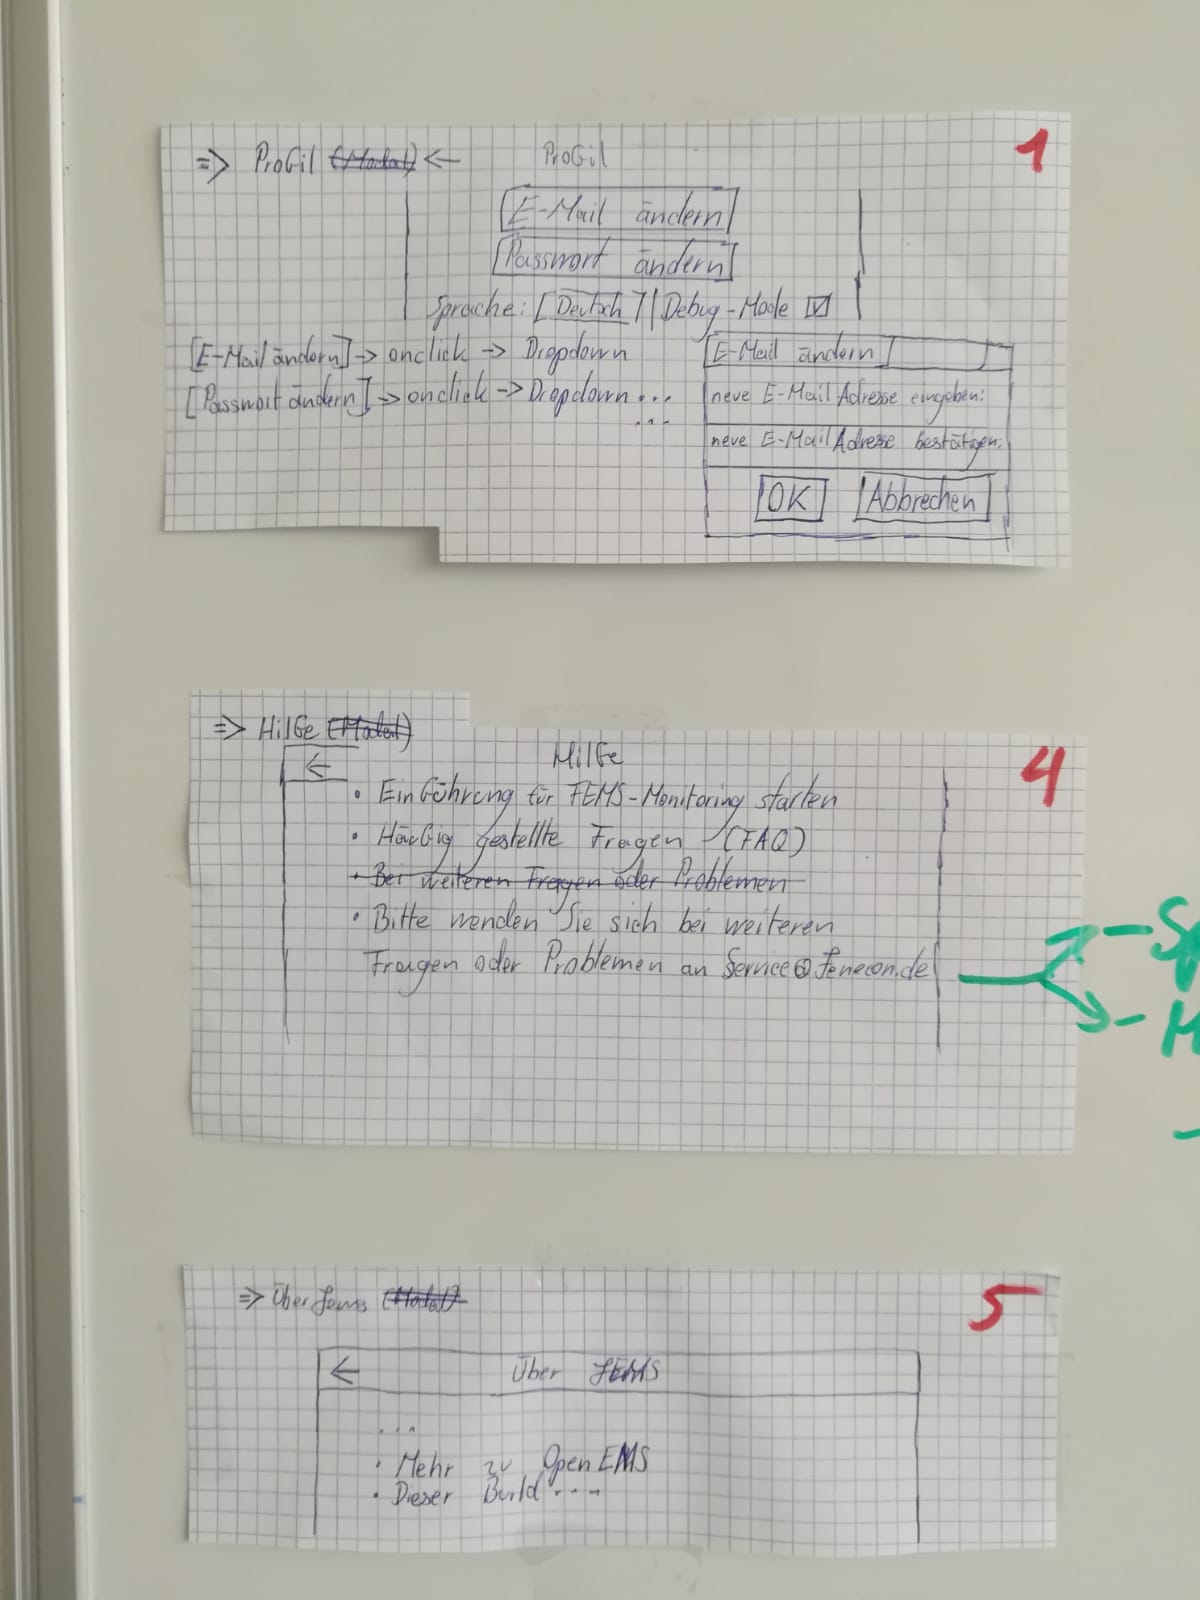 => Profil (Modal) <- Profil 1
[E-Mail ändern]
[Passwort ändern]
Sprache: [Deutsch] | Debug-Mode ☑
[E-Mail ändern] -> onclick -> Dropdown
[Passwort ändern] -> onclick -> Dropdown ...
...
[E-Mail ändern]
neue E-Mail Adresse eingeben:
neue E-Mail Adresse bestätigen:
[OK] [Abbrechen]
=> Hilfe (Modal)
<- Hilfe 4
• Einführung für FEMS-Monitoring starten
• Häufig gestellte Fragen (FAQ)
• Bei weiteren Fragen oder Problemen
• Bitte wenden Sie sich bei weiteren
Fragen oder Problemen an Service@fenecon.de
=> Über Fems (Modal) 5
<- Über FEMS
...
• Mehr zu OpenEMS
• Dieser Build ....